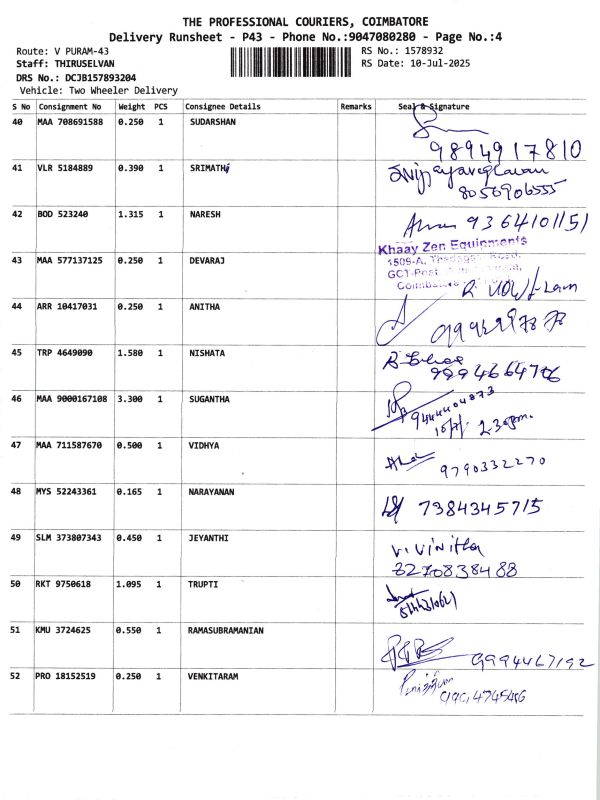 THE PROFESSIONAL COURIERS, COIMBATORE
Delivery Runsheet - P43 - Phone No.:9047080280 - Page No.:4
Route: V PURAM-43 RS No.: 1578932
Staff: THIRUSELVAN RS Date: 10-Jul-2025
DRS No.: DCJB157893204
Vehicle: Two Wheeler Delivery
S No Consignment No Weight PCS Consignee Details Remarks Seal & Signature
40 MAA 708691588 0.250 1 SUDARSHAN
9894917810
41 VLR 5184889 0.390 1 SRIMATHi
8056906555
42 BOD 523240 1.315 1 NARESH
9364101151
43 MAA 577137125 0.250 1 DEVARAJ
Khaay Zen Equipments
1509-A, Road,
GCT-Post
44 ARR 10417031 0.250 1 ANITHA
45 TRP 4649090 1.580 1 NISHATA
46 MAA 9000167108 3.300 1 SUGANTHA
9444404873
2.30pm.
47 MAA 711587670 0.500 1 VIDHYA
9790332270
48 MYS 52243361 0.165 1 NARAYANAN
7384345715
49 SLM 373807343 0.450 1 JEYANTHI
V. Vinitha
50 RKT 9750618 1.095 1 TRUPTI
51 KMU 3724625 0.550 1 RAMASUBRAMANIAN
9994467192
52 PRO 18152519 0.250 1 VENKITARAM